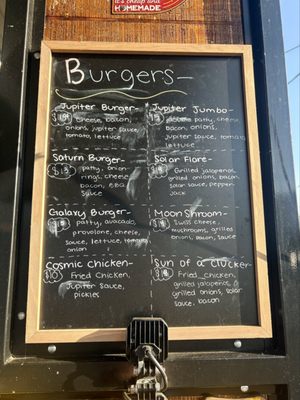 it's
HOMEMADE
Burgers
Jupiter Burger-
Patty,
cheese, bacon,
onions, jupiter sauce,
tomato, lettuce
Jupiter Jumbo-
patty, cheese,
bacon, onions,
jupiter sauce, tomato
lettuce
Saturn Burger-
patty, onion
rings, cheese,
bacon, BBQ
sauce
Solar Flare-
Grilled jalapenos,
grilled onions, bacon
solar sauce, pepper
jack
Galaxy Burger-
patty, avocado,
provolone, cheese,
sauce, lettuce, tomato
onion
Moon Shroom-
Swiss cheese,
mushrooms, grilled
onions, bacon, sauce
Cosmic chicken-
$10
Fried Chicken,
Jupiter sauce,
pickles
Sun of a clucker-
Fried chicken,
grilled jalapenos,
grilled onions, solar
sauce, bacon